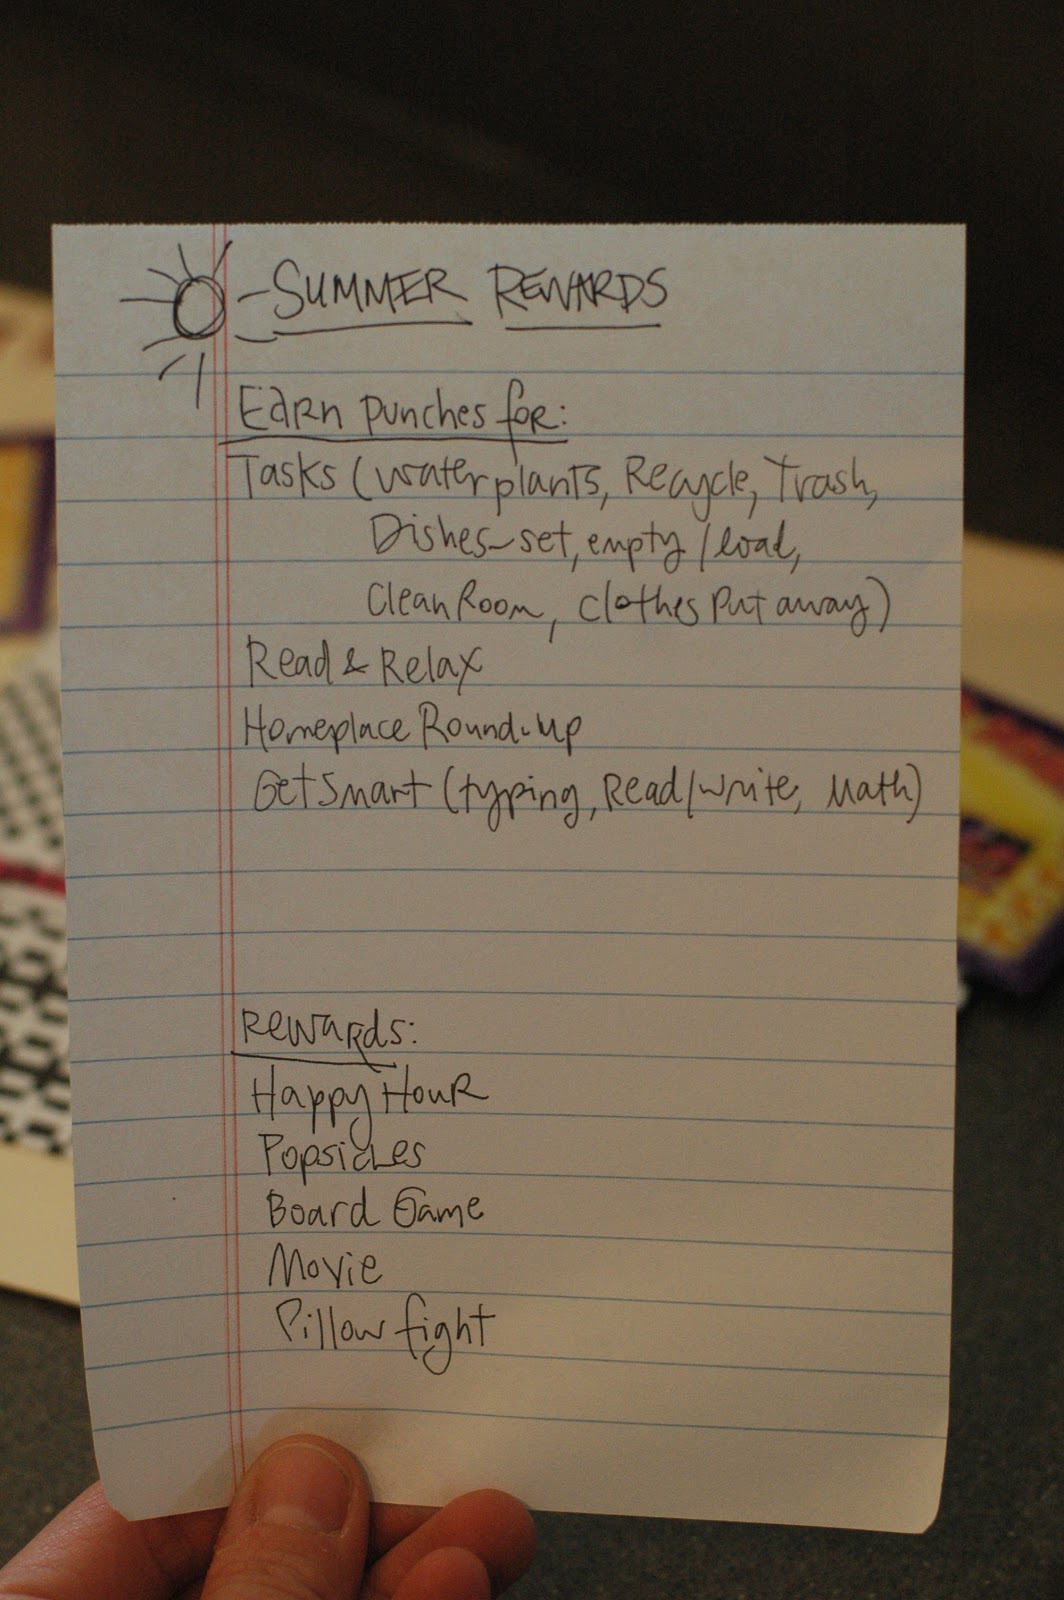 SUMMER REWARDS
Earn punches for:
Tasks (water plants, Recycle, Trash,
Dishes-set, empty/load,
Clean Room, clothes put away)
Read & Relax
Homeplace Round-up
Get Smart (typing, Read/write, Math)
Rewards:
Happy Hour
Popsicles
Board Game
Movie
Pillow fight